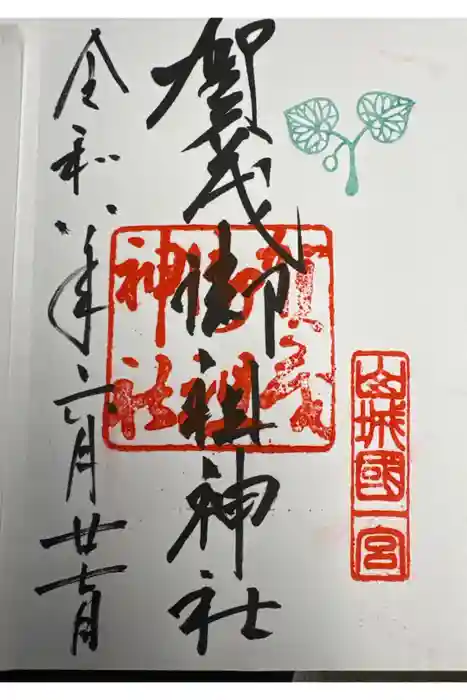 山城國一宮
賀茂御祖神社
賀茂
御祖
神社
令和八年六月廿七日